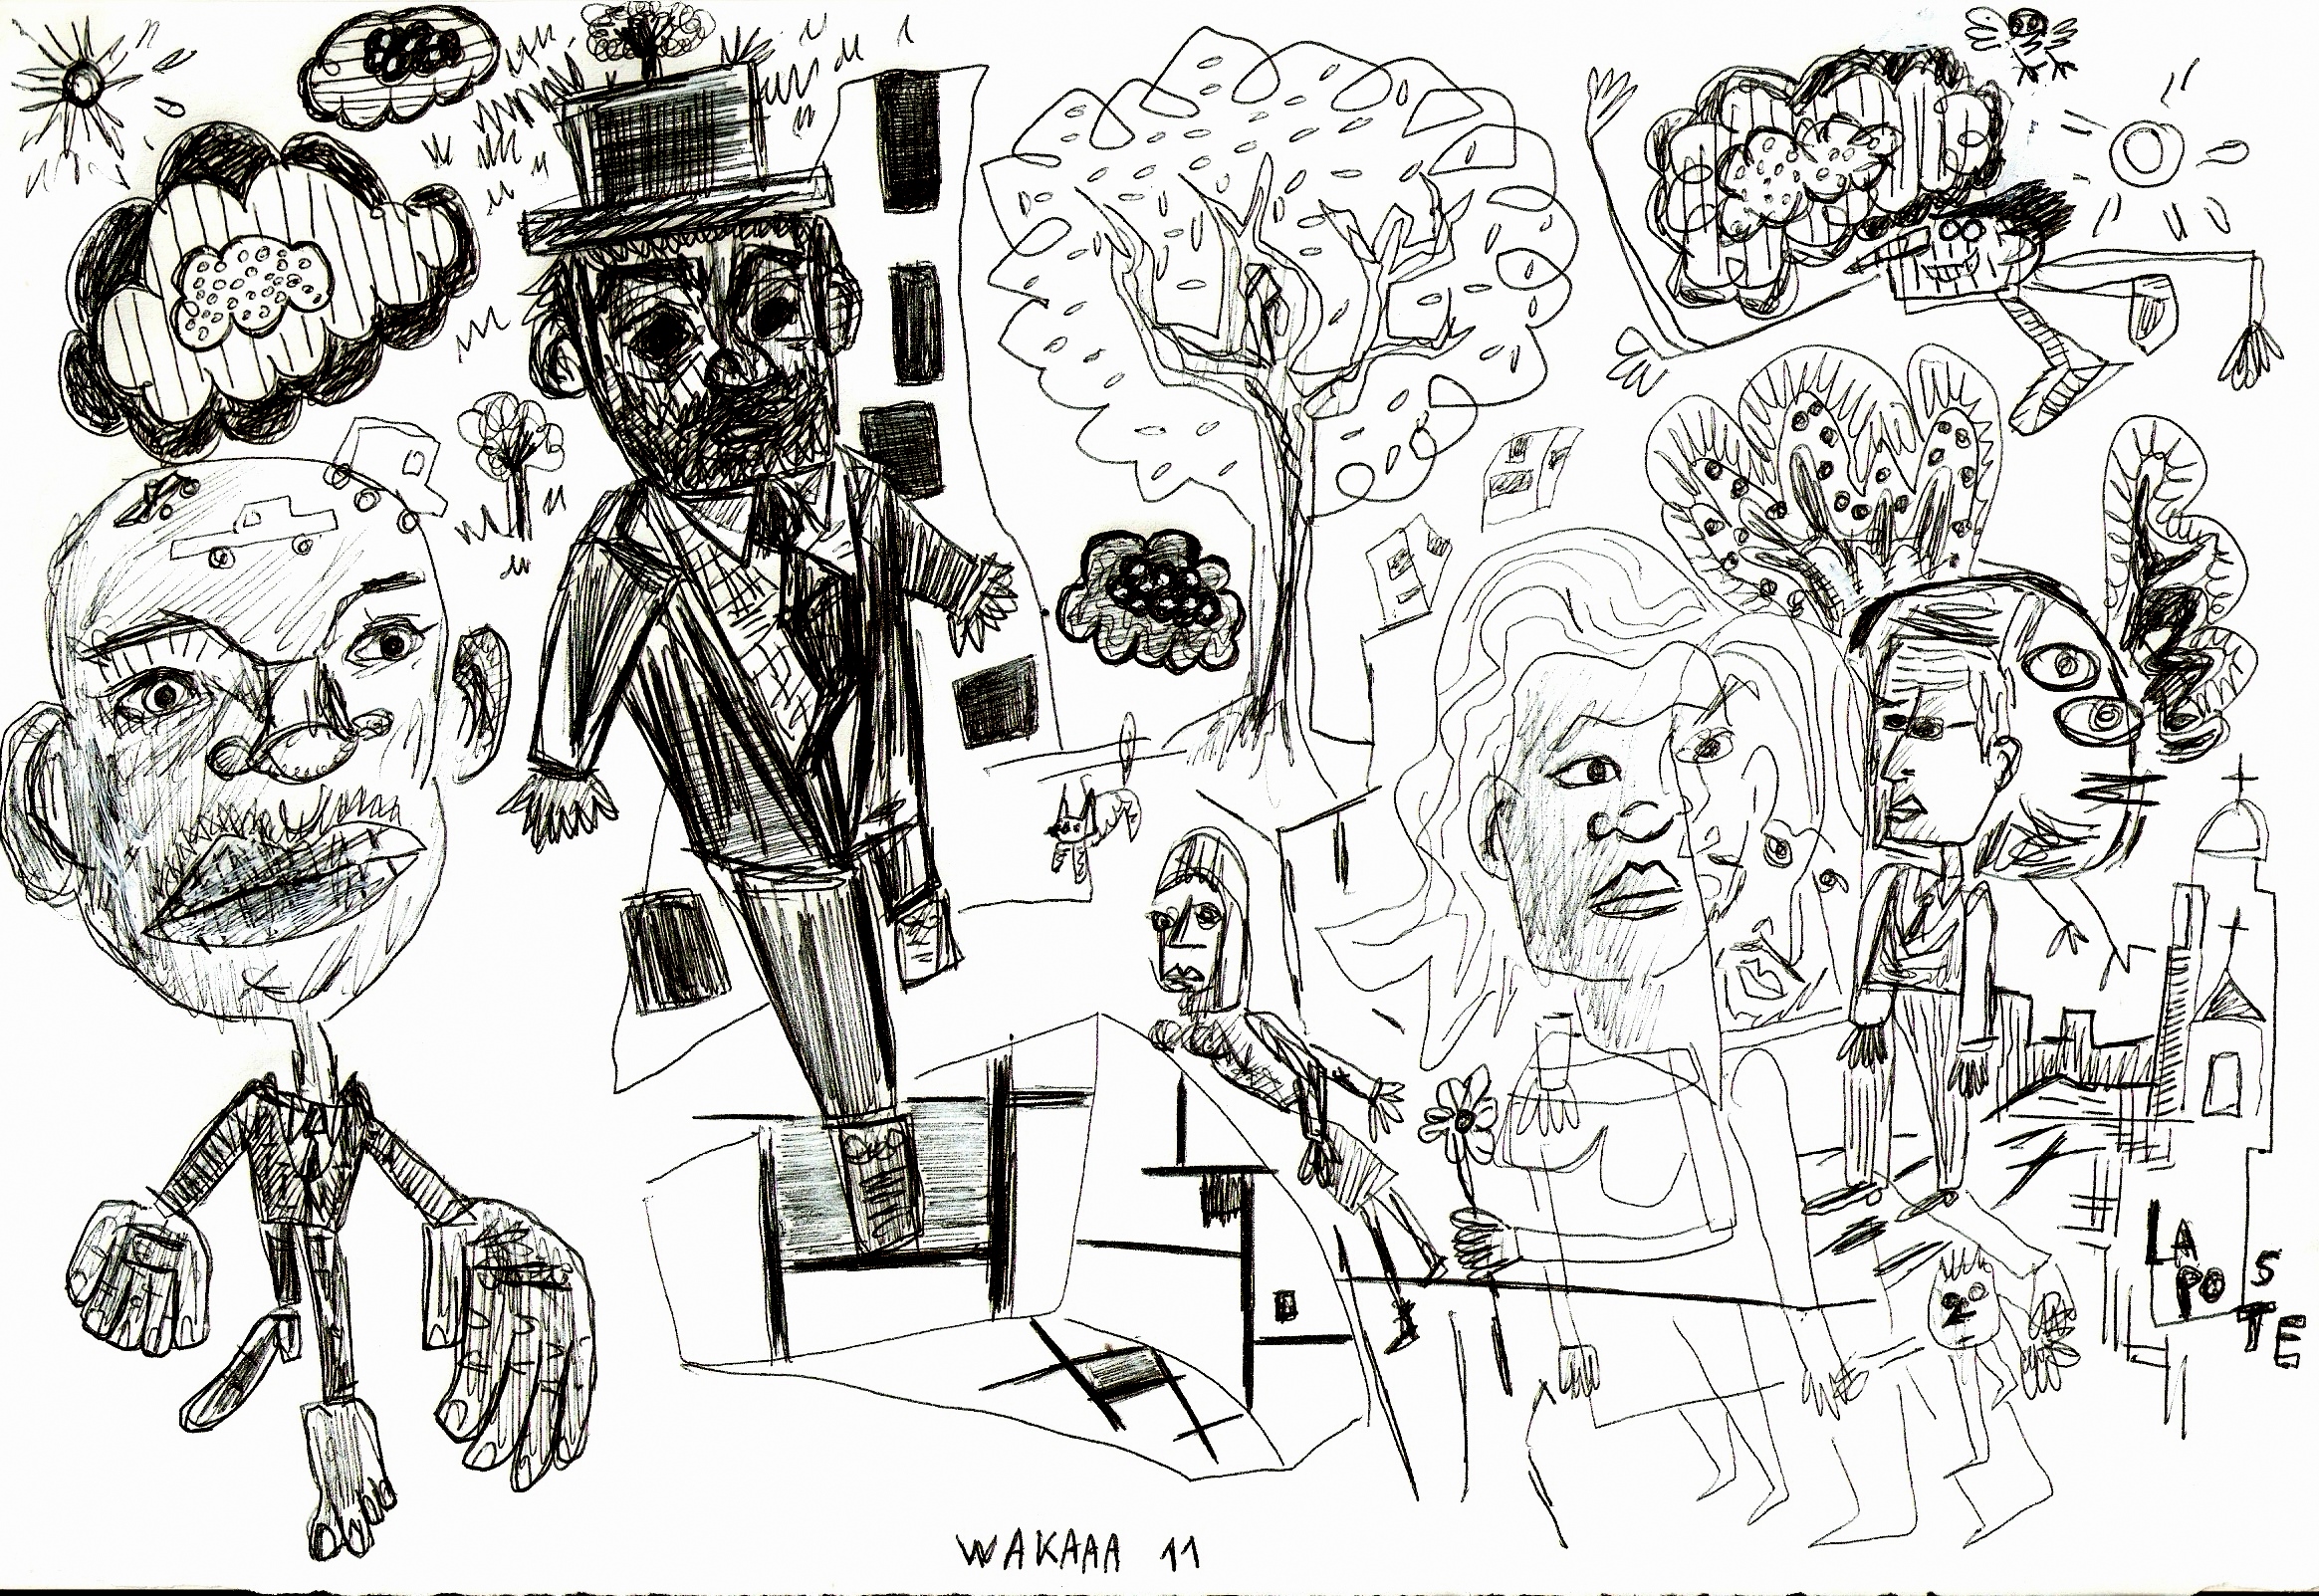 LA
POSTE
WAKAAA 11